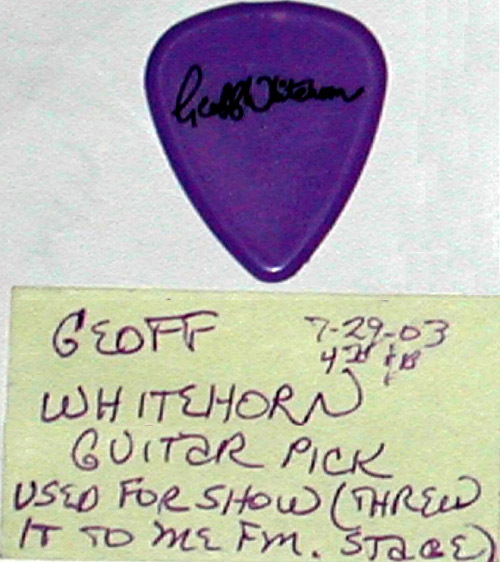 Geoff Whitehorn
GEOFF 7-29-03
WHITEHORN
GUITAR PICK
USED FOR SHOW (THREW
IT TO ME FM. STAGE)